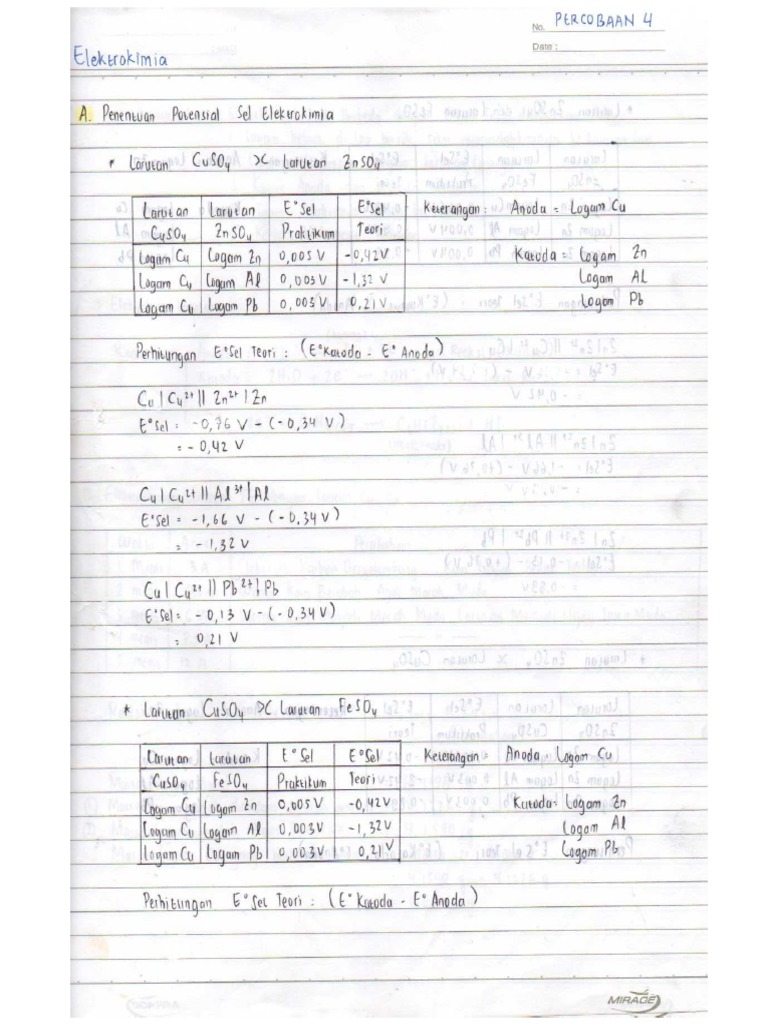 No. PERCOBAAN 4
Date :
Elektrokimia
A. Penentuan Potensial Sel Elektrokimia
* Larutan CuSO4 >< Larutan ZnSO4
Larutan CuSO4 | Larutan ZnSO4 | E°Sel Praktikum | E°Sel Teori
Logam Cu | Logam Zn | 0,005 V | -0,42V
Logam Cu | Logam Al | 0,003 V | -1,32 V
Logam Cu | Logam Pb | 0,003 V | 0,21 V
Keterangan : Anoda = Logam Cu
Katoda = Logam Zn
Logam AL
Logam Pb
Perhitungan E°Sel Teori : (E°Katoda - E° Anoda)
Cu | Cu2+ || Zn2+ | Zn
E°Sel = -0,76 V - (-0,34 V)
= -0,42 V
Cu | Cu2+ || Al3+ | Al
E°Sel = -1,66 V - (-0,34 V)
= -1,32 V
Cu | Cu2+ || Pb2+ | Pb
E°Sel = -0,13 V - (-0,34 V)
= 0,21 V
* Larutan CuSO4 >< Larutan FeSO4
Larutan CuSO4 | Larutan FeSO4 | E°Sel Praktikum | E°Sel Teori
Logam Cu | Logam Zn | 0,005 V | -0,42V
Logam Cu | Logam Al | 0,003V | -1,32V
Logam Cu | Logam Pb | 0,003V | 0,21V
Keterangan = Anoda Logam Cu
Katoda = Logam Zn
Logam Al
Logam Pb
Perhitungan E°Sel Teori : (E° Katoda - E° Anoda)
MIRAGE